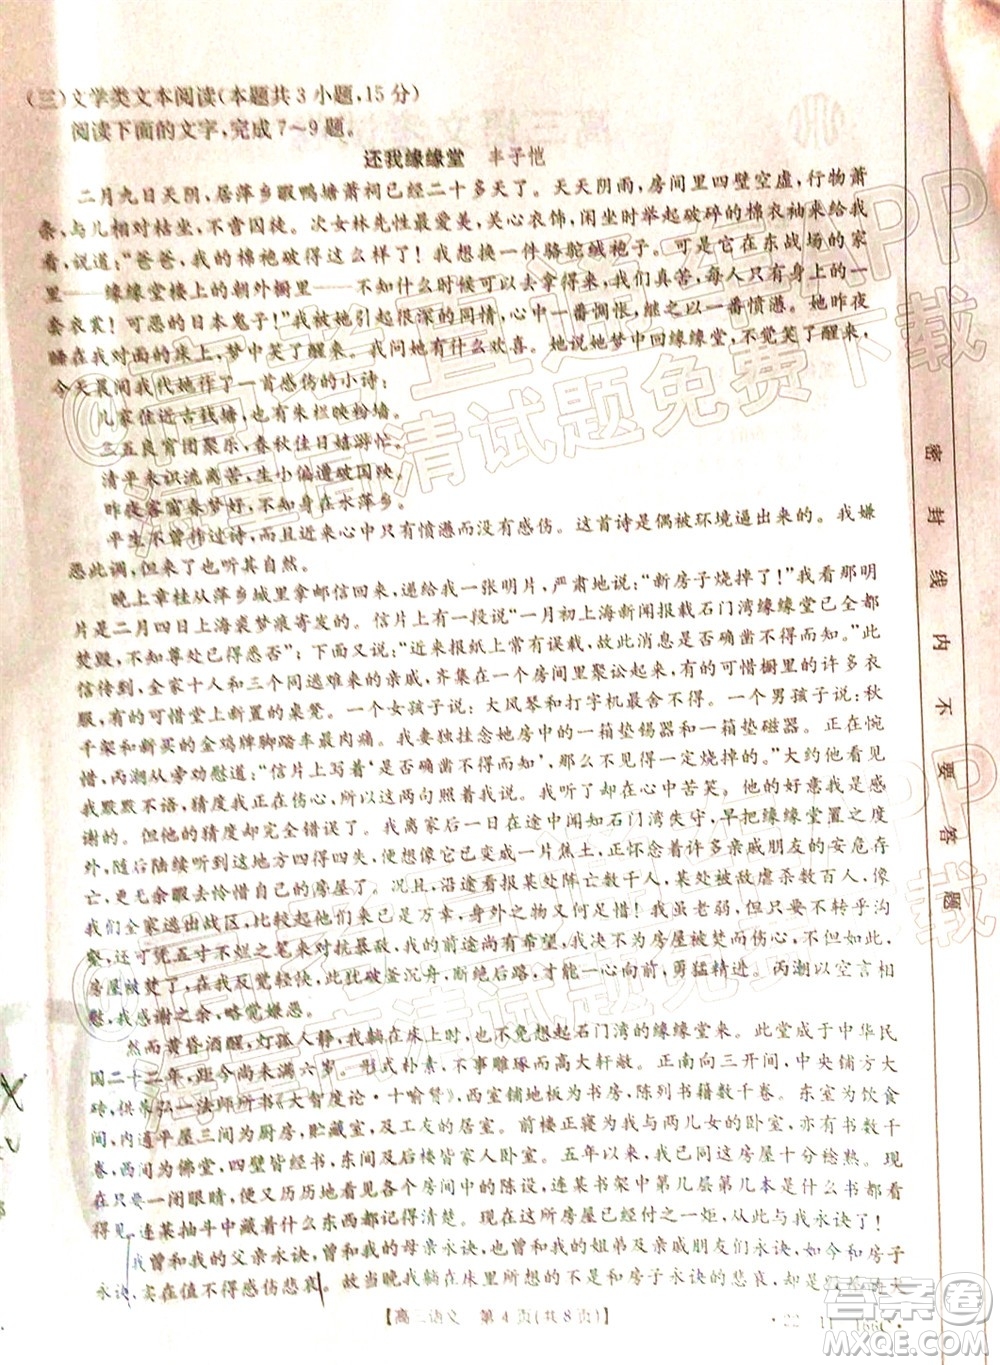 (三)文学类文本阅读(本题共3小题,15分)
阅读下面的文字,完成7~9题。
还我缘缘堂 丰子恺
二月九日天阴,居萍乡暇鸭塘萧祠已经二十多天了。天天阴雨,房间里四壁空虚,行物萧
条,与儿相对枯坐,不啻囚徒。次女林先性最爱美,关心衣饰,闲坐时举起破碎的棉衣袖来给我
看,说道:“爸爸,我的棉袍破得这么样了!我想换一件骆驼绒袍子。可是它在东战场的家
里——缘缘堂楼上的朝外橱里——不知什么时候可以去拿得来,我们真苦,每人只有身上的一
套衣裳!可恶的日本鬼子!”我被她引起很深的同情,心中一番惆怅,继之以一番愤懑。她昨夜
睡在我对面的床上,梦中笑了醒来。我问她有什么欢喜。她说她梦中回缘缘堂,
今天晨间我代她作了一首感伤的小诗:
儿家住近古钱塘,也有朱栏映粉墙。
三五良宵团聚乐,春秋佳日嬉游忙。
清平未识流离苦,生小偏遭破国殃。
昨夜客窗春梦好,不知身在水萍乡。
平生不曾作过诗,而且近来心中只有愤懑而没有感伤。这首诗是偶被环境逼出来的。我嫌
恶此调,但来了也听其自然。
晚上章桂从萍乡城里拿邮信回来,递给我一张明片,严肃地说:“新房子烧掉了!”我看那明
片是二月四日上海裘梦痕寄发的。信片上有一段说“一月初上海新闻报载石门湾缘缘堂已全都
焚毁,不知尊处已得悉否”;下面又说:“近来报纸上常有误载,故此消息是否确凿不得而知。”此
信传到,全家十人和三个同逃难来的亲戚,齐集在一个房间里聚讼起来,有的可惜橱里的许多衣
服,有的可惜堂上新置的桌凳。一个女孩子说:大风琴和打字机最舍不得。一个男孩子说:秋
千架和新买的金鸡牌脚踏车最肉痛。我妻独挂念她房中的一箱垫锡器和一箱垫磁器。正在惋
惜,丙潮从旁劝慰道:“信片上写着‘是否确凿不得而知’,那么不见得一定烧掉的。”大约他看见
我默默不语,猜度我正在伤心,所以这句照着我说。我听了却在心中苦笑。他的好意我是感
谢的。但他的猜度却完全错误了。我离家后一日在途中闻知石门湾失守,早把缘缘堂置之度
外,后来陆续听到这地方四得四失,便想象它已变成一片焦土,正怀念着许多亲戚朋友的安危存
亡,更无余暇去怜惜自己的房屋了。况且,沿途看报某处阵亡数千人,某处被敌虐杀数百人,像
我们全家逃出战区,比较起他们来已是万幸,身外之物又何足惜!我虽老弱,但只要不转乎沟
壑,还可凭五寸不烂之笔来对抗暴敌,我的前途尚有希望,我决不为房屋被焚而伤心,不但如此,
房屋被焚了,在我反觉轻快,此犹破釜沉舟,断绝后路,才能一心向前,勇猛精进。丙潮以空言相
慰,我感谢之余,略觉嫌恶。
然而黄昏酒醒,灯孤人静,我躺在床上时,也不免想起石门湾的缘缘堂来。此堂成于中华民
国二十二年,距今尚未满六岁。形式朴素,不事雕琢而高大轩敞。正南向三开间,中央铺大方
砖,供养弘一法师所书《大智度论·十喻赞》,西室铺地板为书房,陈列书籍数千卷。东室为饮食
间,内通平屋三间为厨房,贮藏室,及工友的居室。前楼正寝为我与两儿女的卧室,亦有书数千
卷,西间为佛堂,四壁皆经书,东间及后楼皆家人卧室。五年以来,我已同这房屋十分稔熟。现
在只要一闭眼睛,便又历历地看见各个房间中的陈设,连某书架中第几层第几本是什么书都看
得见,连某抽斗中藏着什么东西都记得清楚。现在这所房屋已经付之一炬,从此与我永诀了!
我曾和我的父亲永诀,曾和我的母亲永诀,也曾和我的姐弟及亲戚朋友们永诀,如今和房子
永诀,实在值不得感伤悲哀。故当晚我躺在床里所想的不是和房子永诀的悲哀,却是
高三语文 第4页(共8页)
密封线内不要答题